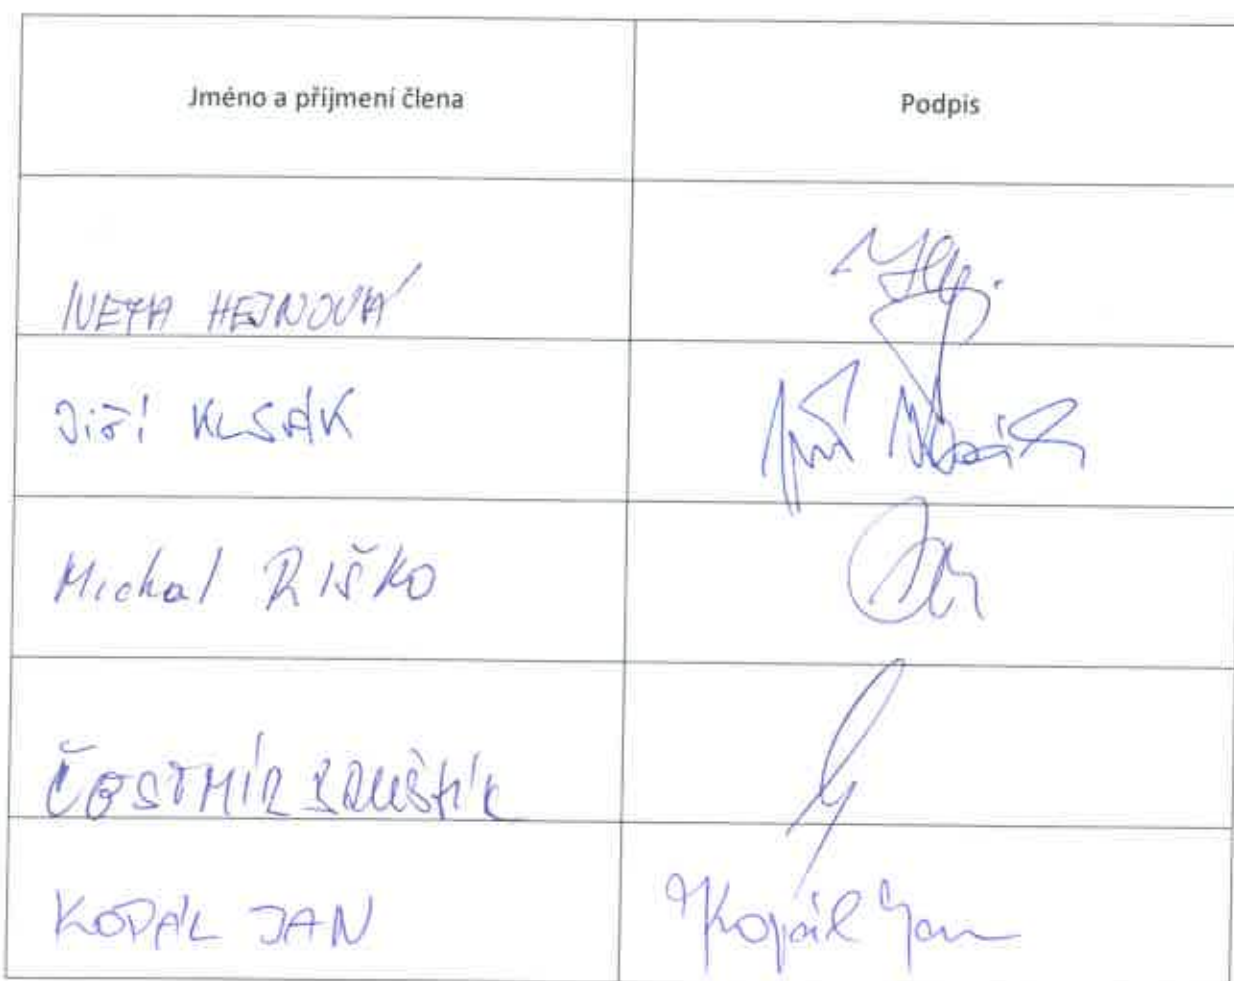 Jméno a příjmení člena Podpis
IVETA HEJNOVÁ
Jiří KLSÁK Jiří Klsák
Michal RIŠKO
ČESTMÍR
KOPÁL JAN Kopál Jan